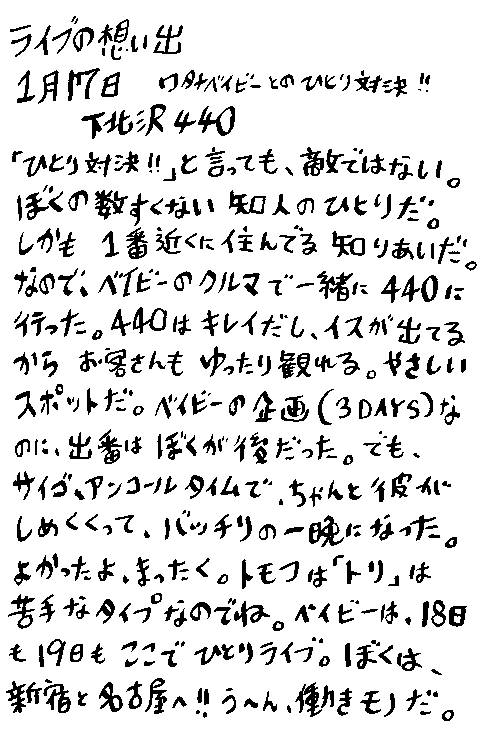 ライブの想い出
1月17日 ワタナベイビーとのひとり対決!!
下北沢440
「ひとり対決!!」と言っても、敵ではない。
ぼくの数すくない知人のひとりだ。
しかも1番近くに住んでる知りあいだ。
なので、ベイビーのクルマで一緒に440に
行った。440はキレイだし、イスが出てる
からお客さんもゆったり観れる。やさしい
スポットだ。ベイビーの企画(3DAYS)な
のに、出番はぼくが後だった。でも、
サイゴ、アンコールタイムで、ちゃんと彼が
しめくくって、バッチリの一晩になった。
よかったよ、まったく。トモフは「トリ」は
苦手なタイプなのでね。ベイビーは、18日
も19日もここでひとりライブ。ぼくは、
新宿と名古屋へ!!う〜ん、働きモノだ。